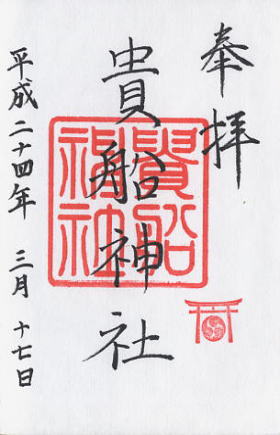 奉拝
貴船神社
貴船神社
平成二十四年 三月 十七日